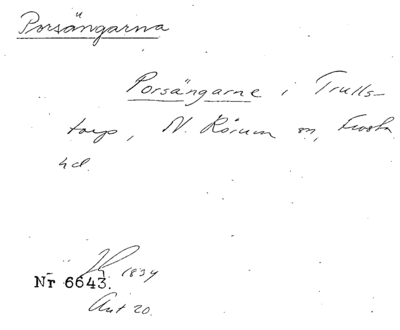 Porsängarna
Porsängarne i Trulls-
torp, N. Rörum sn, Frosta
hd.
1834
Nr 6643.
Akt 20.